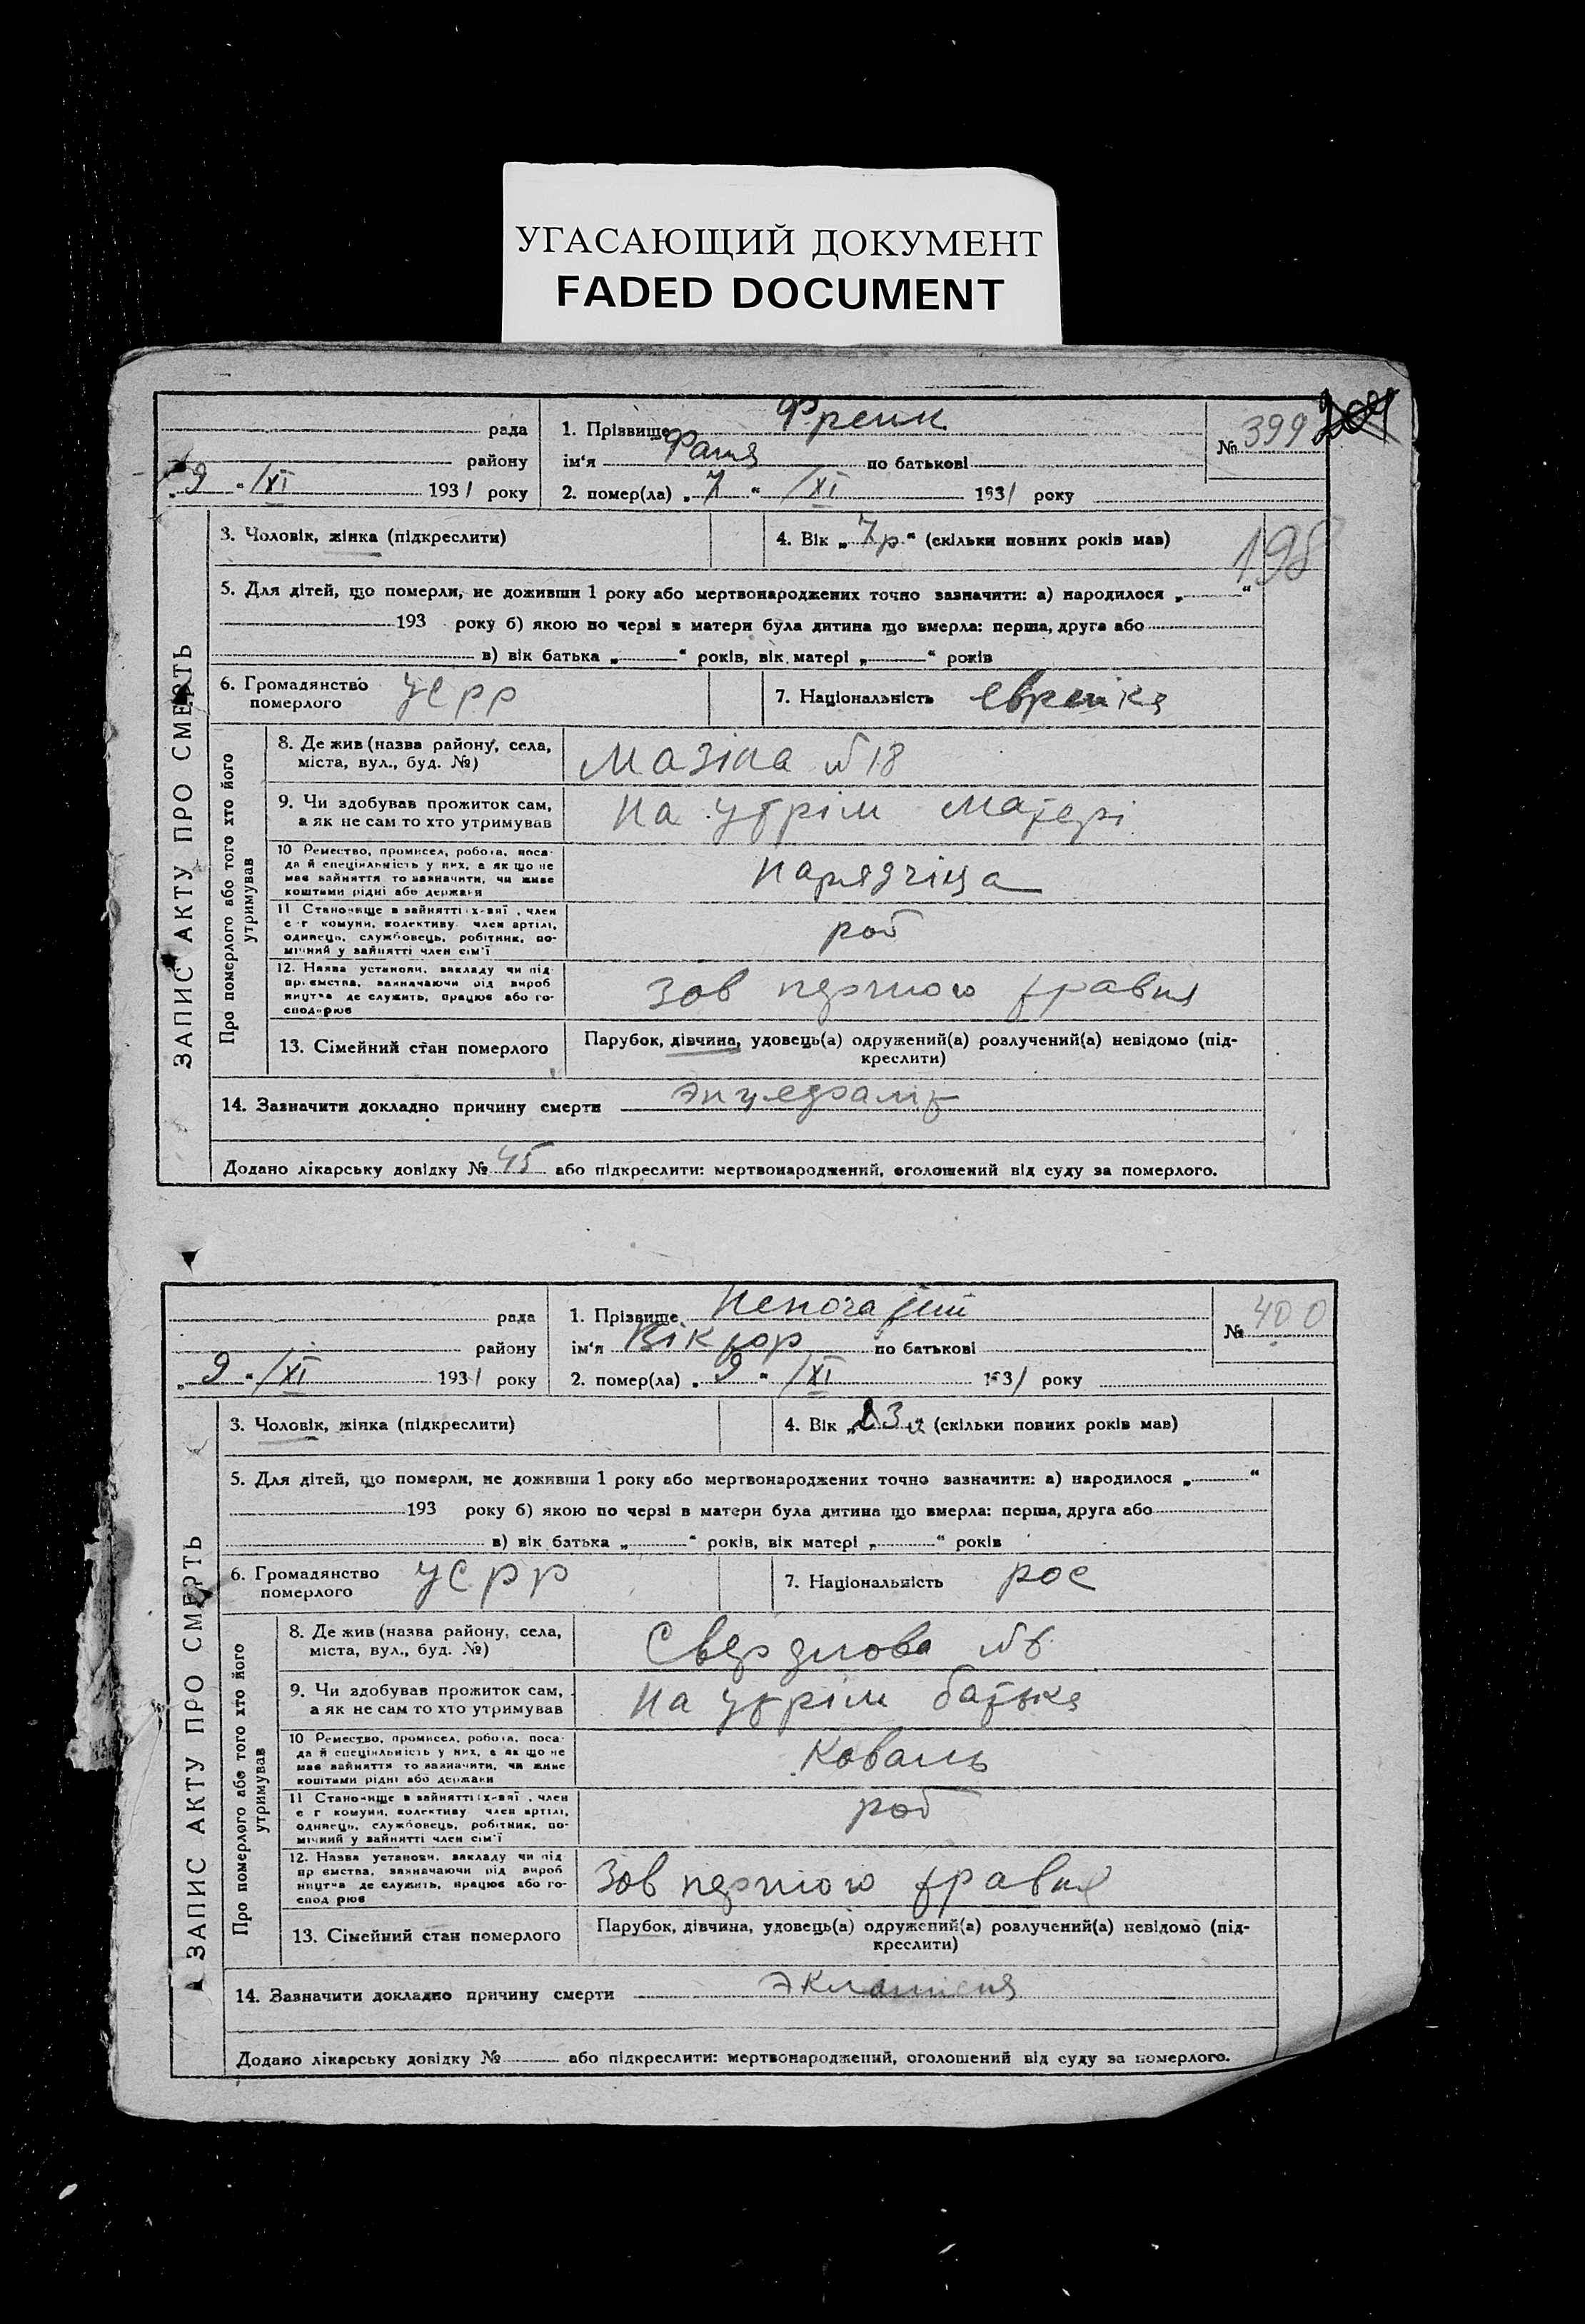 УГАСАЮЩИЙ ДОКУМЕНТ
FADED DOCUMENT
рада
району
„9“ /XI 1931 року
1. Прізвище Френк
ім'я Фаня по батькові
2. помер(ла) „7“ /XI 1931 року
№ 399
198
ЗАПИС АКТУ ПРО СМЕРТЬ
3. Чоловік, жінка (підкреслити)
4. Вік „7р“ (скільки повних років мав)
5. Для дітей, що померли, не доживши 1 року або мертвонароджених точно зазначити: а) народилося „ “
193 року б) якою по черзі в матери була дитина що вмерла: перша, друга або
в) вік батька „ “ років, вік матері „ “ років
6. Громадянство
померлого УСРР
7. Національність еврейка
Про померлого або того хто його
утримував
8. Де жив (назва району, села,
міста, вул., буд. №)
Мазіна № 18
9. Чи здобував прожиток сам,
а як не сам то хто утримував
на утрім матері
10 Ремество, промисел, робота, поса-
да й спеціяльність у них, а як що не
має зайняття то зазначити, чи живе
коштами рідні або держави
нарядчіца
11 Становище в зайнятті: х-вяї, член
с-г комуни, колективу член артілі,
одинець, службовець, робітник, по-
мічний у зайнятті член сім'ї
роб
12. Назва установи, закладу чи під-
приємства, зазначаючи рід вироб
ництва де служить, працює або го-
сподарює
Зав першого травня
13. Сімейний стан померлого
Парубок, дівчина, удовець(а) одружений(а) розлучений(а) невідомо (під-
креслити)
14. Зазначити докладно причину смерти Энцефаліт
Додано лікарську довідку № 45 або підкреслити: мертвонароджений, оголошений від суду за померлого.
рада
району
„9“ /XI 1931 року
1. Прізвище
ім'я Віктор по батькові
2. помер(ла) „9“ /XI 1931 року
№ 400
ЗАПИС АКТУ ПРО СМЕРТЬ
3. Чоловік, жінка (підкреслити)
4. Вік (скільки повних років мав)
5. Для дітей, що померли, не доживши 1 року або мертвонароджених точно зазначити: а) народилося „ “
193 року б) якою по черзі в матери була дитина що вмерла: перша, друга або
в) вік батька „ “ років, вік матері „ “ років
6. Громадянство
померлого УСРР
7. Національність рос
Про померлого або того хто його
утримував
8. Де жив (назва району, села,
міста, вул., буд. №)
Свердлова №
9. Чи здобував прожиток сам,
а як не сам то хто утримував
на утрім батька
10 Ремество, промисел, робота, поса-
да й спеціяльність у них, а як що не
має зайняття то зазначити, чи живе
коштами рідні або держави
Коваль
11 Становище в зайнятті: х-вяї, член
с г комуни, колективу член артілі,
одинець, службовець, робітник, по-
мічний у зайнятті член сім'ї
роб
12. Назва установи, закладу чи під
приємства, зазначаючи рід вироб
ництва де служить, працює або го-
сподарює
Зав першого травня
13. Сімейний стан померлого
Парубок, дівчина, удовець(а) одружений(а) розлучений(а) невідомо (під-
креслити)
14. Зазначити докладно причину смерти
Додано лікарську довідку № або підкреслити: мертвонароджений, оголошений від суду за померлого.